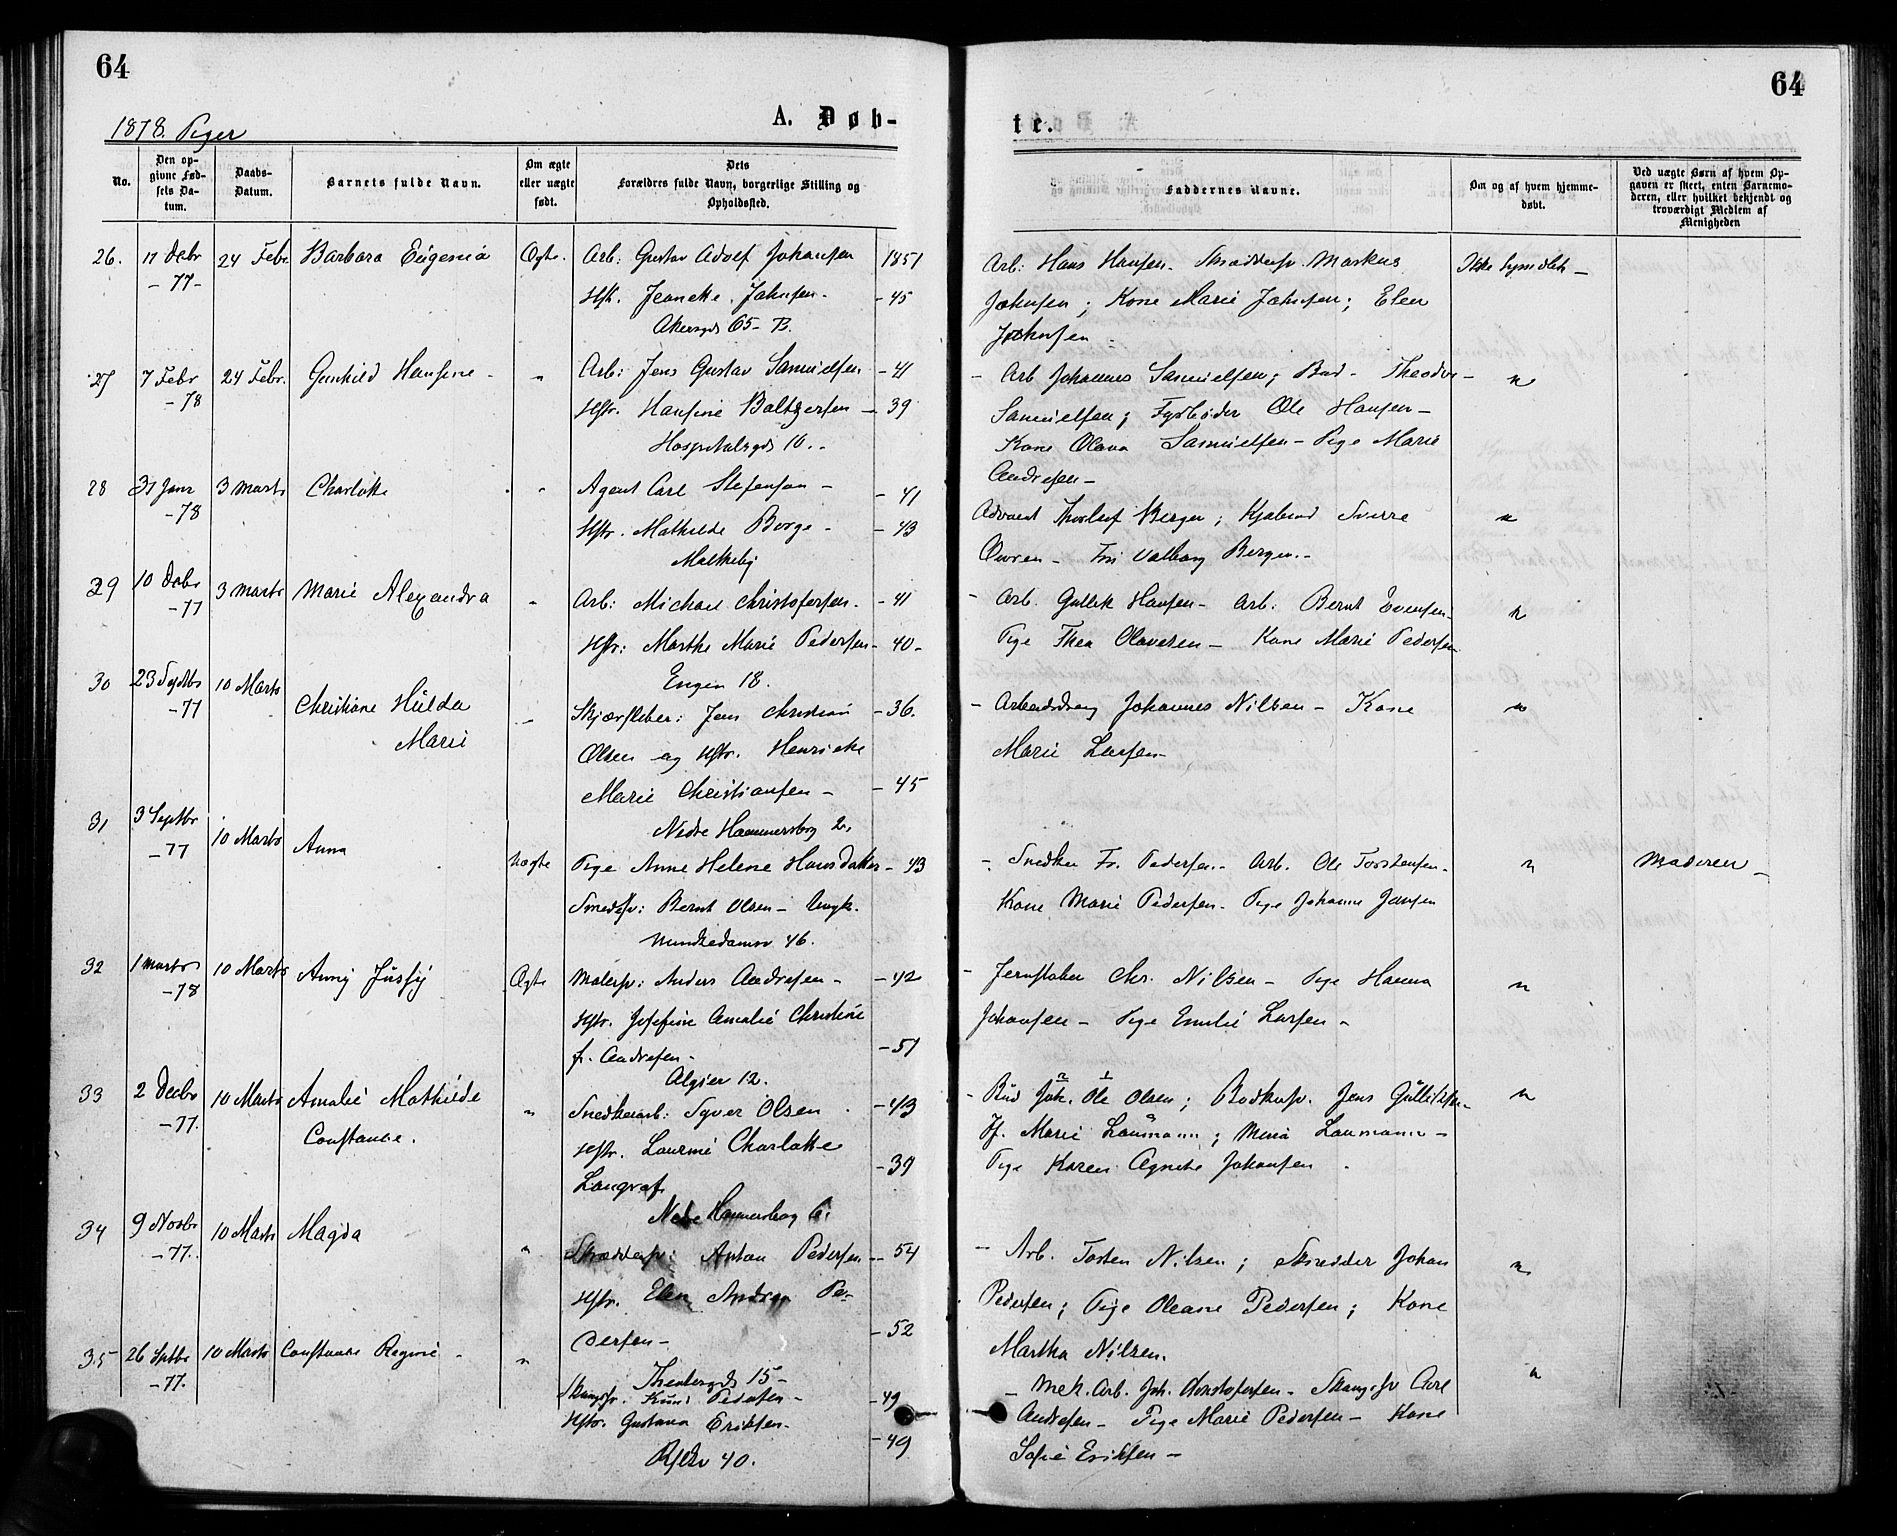 64
64
1878. Piger
A. Døb-
te.
No.
Den op-
givne Fød-
sels Da-
tum.
Daabs-
Datum.
Barnets fulde Navn.
Om ægte
eller uægte
født.
Dets
Forældres fulde Navn, borgerlige Stilling og
Opholdssted.
Faddernes Navne.
Om og af hvem hjemme-
døbt.
Ved uægte Børn af hvem Op-
gaven er skeet, enten Barnemo-
deren, eller hvilket bekjendt og
troværdigt Medlem af
Menigheden
26. 11 Debr 24 Febr. Barbara Eugenia Ægte. Arb: Gustav Adolf Johansen 1851
- 77 - Hstr. Jeancke Johnsen - - 45
Akersgd 65 - B.
Arb: Hans Hansen - Skrædersv. Markus Ikke hjemdøbt -
Johnsen; Kone Marie Johnsen; Elen
Johnsen
27 7 Febr 24 Febr. Gunhild Hansine - " Arb: Jens Gustav Samuelsen - 41
- 78 Hstr. Hansine Baltzersen - 39
Hospitalsgd 10.
- Arb Johannes Samuelsen; Theodor - "
Samuelsen; Fyrbøder Ole Hansen -
Kone Olava Samuelsen - Pige Marie
Andresen -
28 31 Janr 3 Marts Charlotte " Agent Carl Stefensen - - 41
- 78 Hstr. Mathilde Borge - - 43
Malkeby
Advocat Thorleif Berger; Sverre "
- Frk Valborg Bergen -
29 10 Debr 3 Marts Marie Alexandra " Arb: Michael Christofersen - - 41
- 77 Hstr: Marthe Marie Pedersen - 40 -
Engen 18.
- Arb. Gullik Hansen - Arb: Bernt Evensen - "
Pige Thea Olavesen - Kone Marie Pedersen
30 23 Septbr 10 Marts Christiane Hulda " Skjærsliber: Jens Christian - 36.
- 77 Marie Olsen og Hstr. Henricke
Marie Christiansen - - 45
Nedre Hammersborg 2.
- Arbeidsdreng Johannes Nilsen - Kone "
Marie Larsen -
31 3 Septbr 10 Marts Anna Uægte Pige Anne Helene Hansdatter - 43
- 77 Smedsv: Bernt Olsen - Ungk.
Munkedamsv 46.
- Snedker Fr. Pedersen - Arb. Ole Torstensen - " Moderen -
Kone Marie Pedersen - Pige Johanne Jansen
32 1 Marts 10 Marts Anny Jussy Ægte Malersv: Anders Andresen - - 42
- 78 Hstr. Josefine Amalie Christine
f. Andresen - - 51
Algier 12.
- Jernstøber Chr. Nilsen - Pige Hanna "
Johansen - Pige Emilie Larsen -
33 2 Decbr 10 Marts Amalie Mathilde " Snedkerarb: Syver Olsen - 43
- 77. Constance. Hstr. Laurine Charlotte
Langraf - 39
Nedre Hammersborg 6.
- Bud Joh. Ole Olsen; Bødkersv. Jens Gulliksen - "
Marie Laumann; Mina Laumann -
Pige Karen Agnete Johansen
34 9 Novbr 10 Marts Magda " Skrædersv: Anton Pedersen - 54
- 77. Hstr. Elen Andrea Pe-
dersen - - 52
Theatergd 15 -
- Arb. Torsten Nilsen; Skrædder Johan "
Pedersen; Pige Oleane Pedersen; Kone
Martha Nilsen.
35 26 Septbr 10 Marts Constance Regine - " Knud Pedersen - - 49
- 77. Hstr. Gustava Eriksen - - 49
40.
- Mek. Arb. Joh. Christofersen - Carl "
Andresen - Pige Marie Pedersen - Kone
Sofie Eriksen -